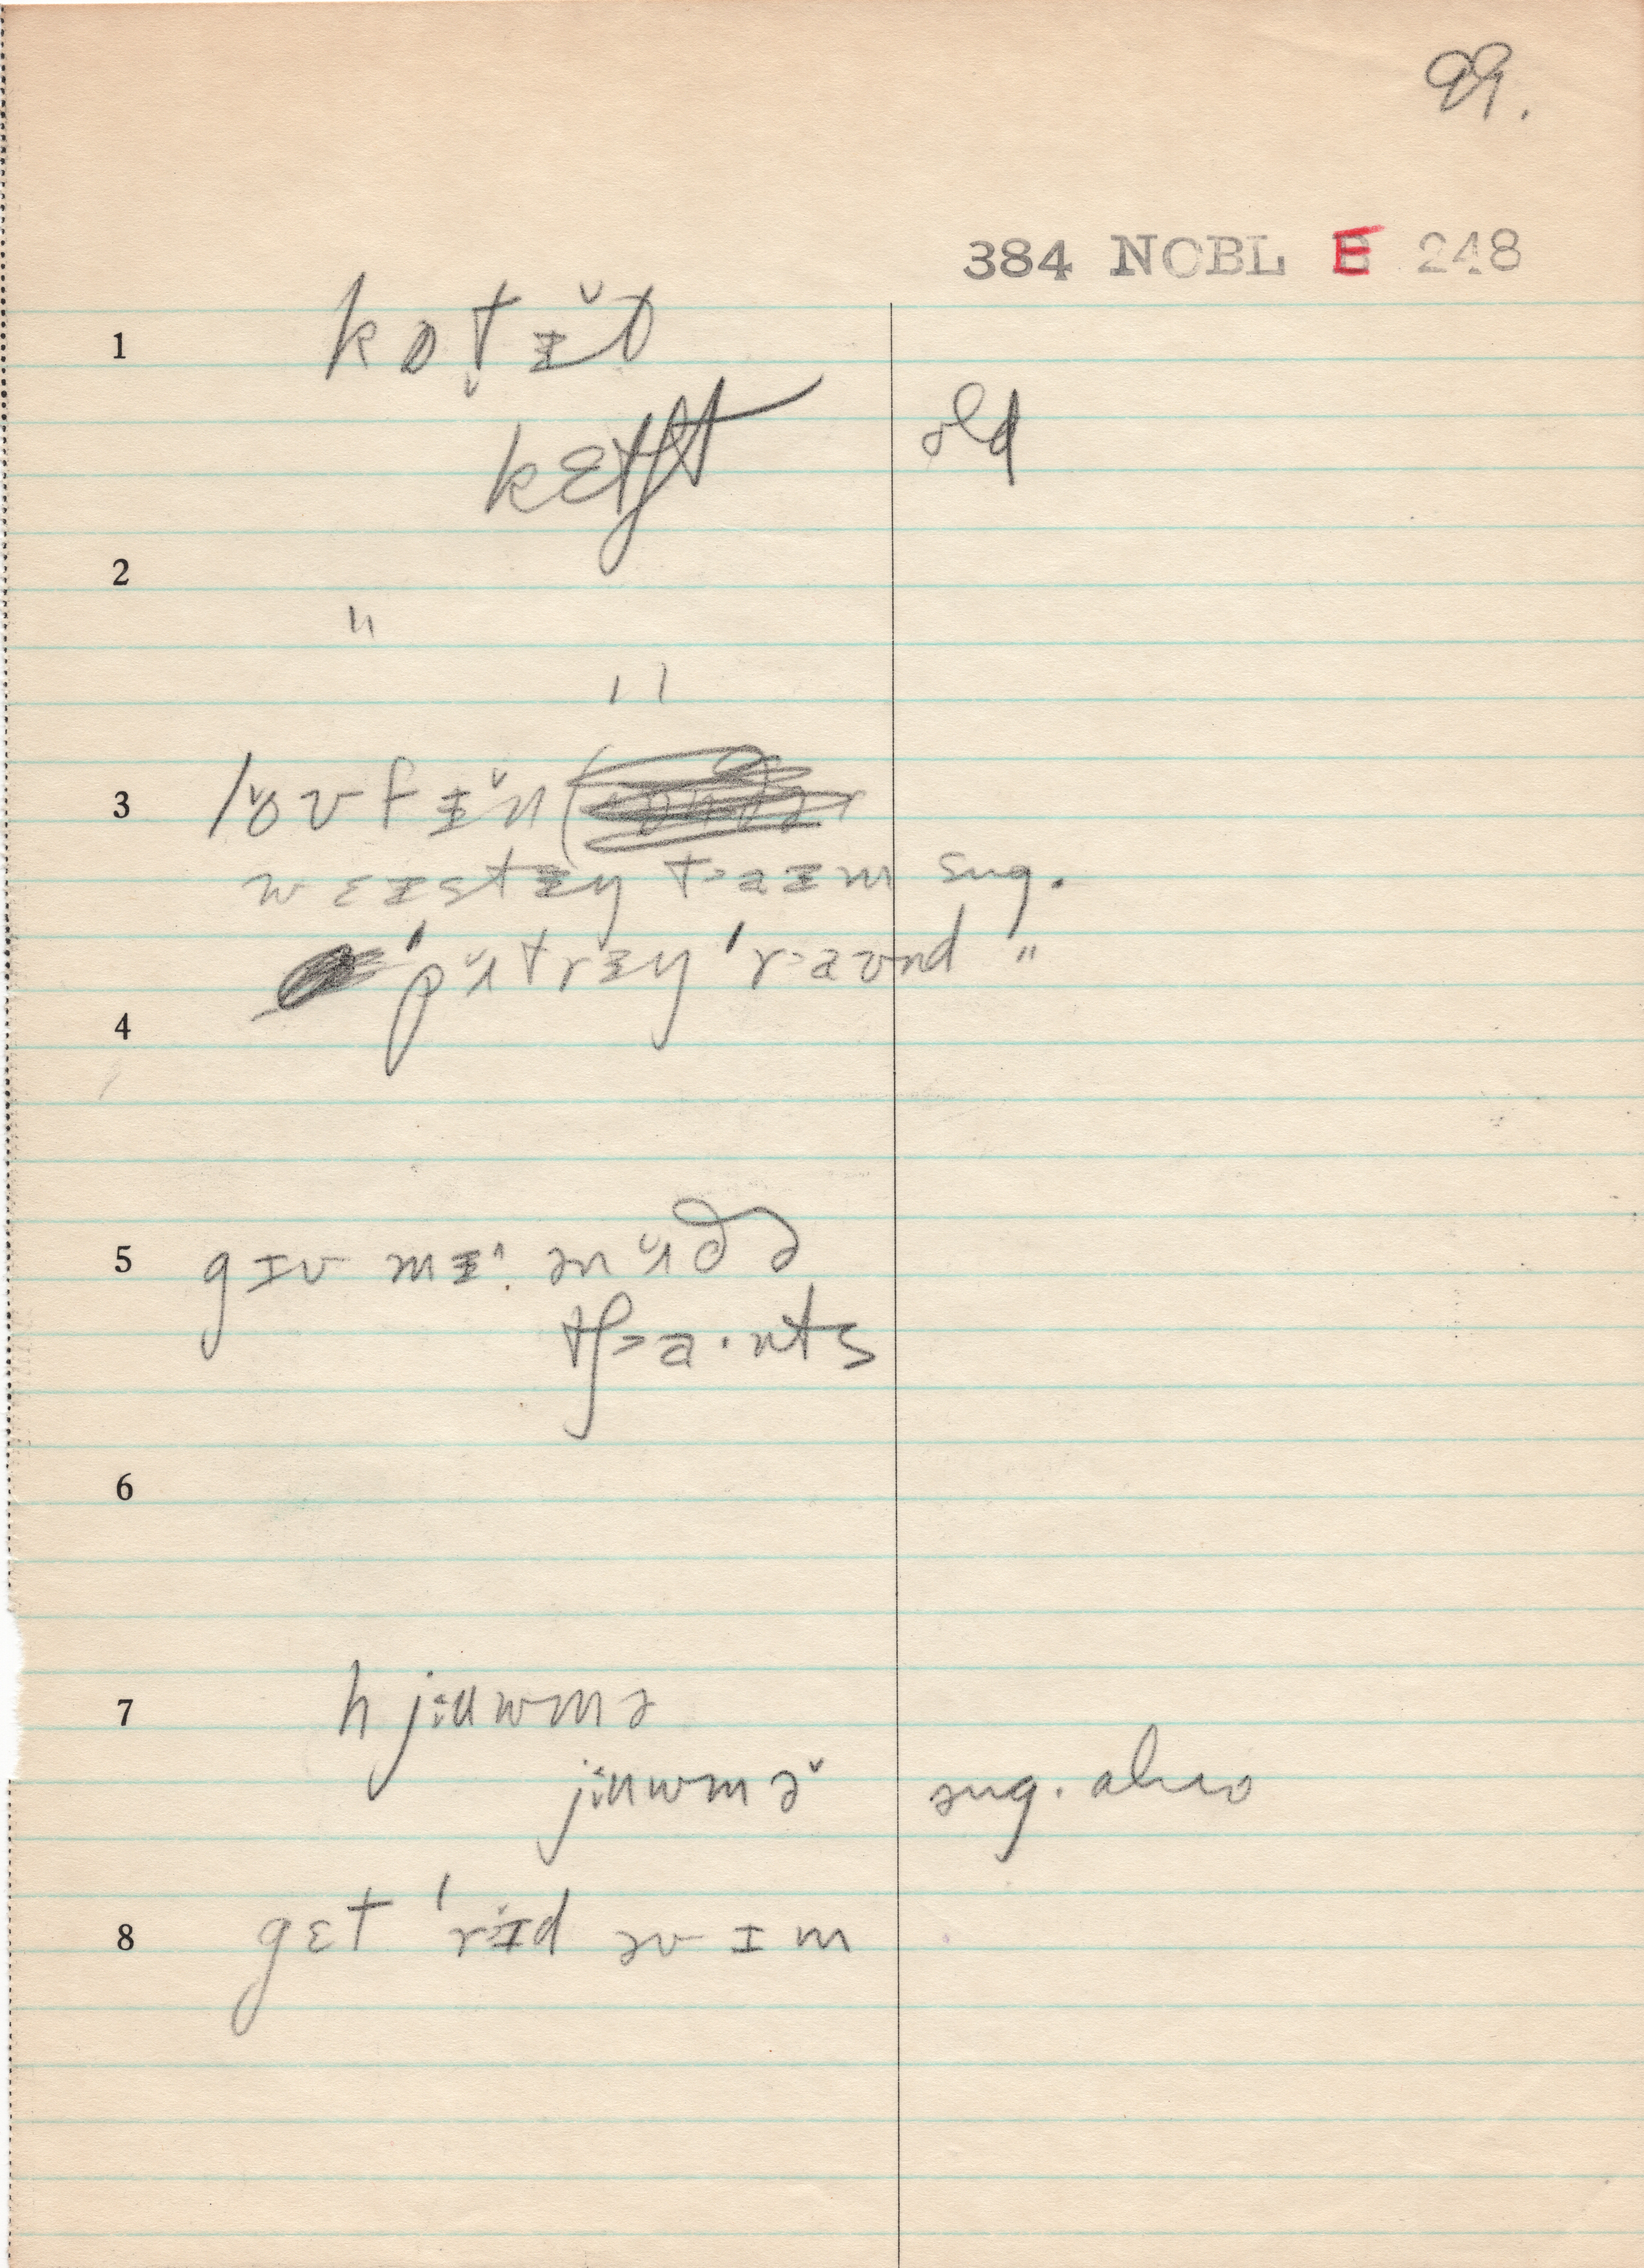 99.
384 NOBL E 248
1 kɒt̬ ɪ̆t
kɛtʃt old
2 "
"
3 lo̬vfɪ̆n (
wɛɪstɪŋ t>aɪm sug.
'pʌ̆trɪŋ 'r>aʊnd "
4
5 gɪv mɪ^. ənʌ̆ðə
tʃ>a·nts
6
7 hjiuwmə
jiuwmə̆ sug. also
8 gɛt 'rɪ̆d əv ɪm